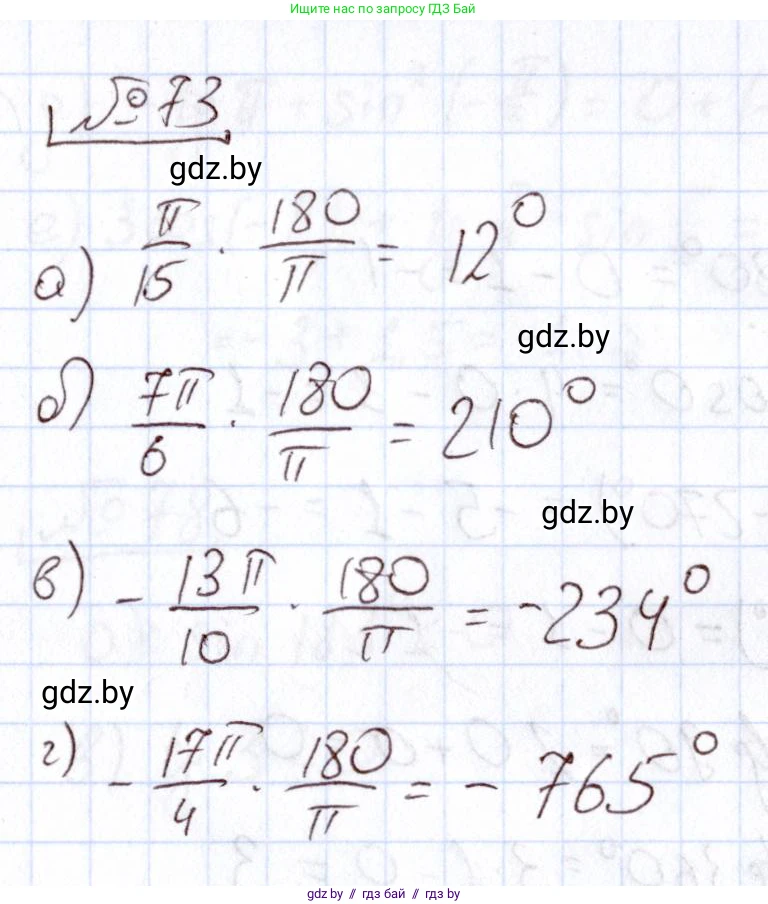 Ищите нас по запросу ГДЗ Бай
№ 73
gdz.by
а) π/15 · 180/π = 12°
gdz.by
б) 7π/6 · 180/π = 210°
gdz.by
в) - 13π/10 · 180/π = -234°
gdz.by
г) - 17π/4 · 180/π = - 765°
gdz.by // гдз бай // гдз by